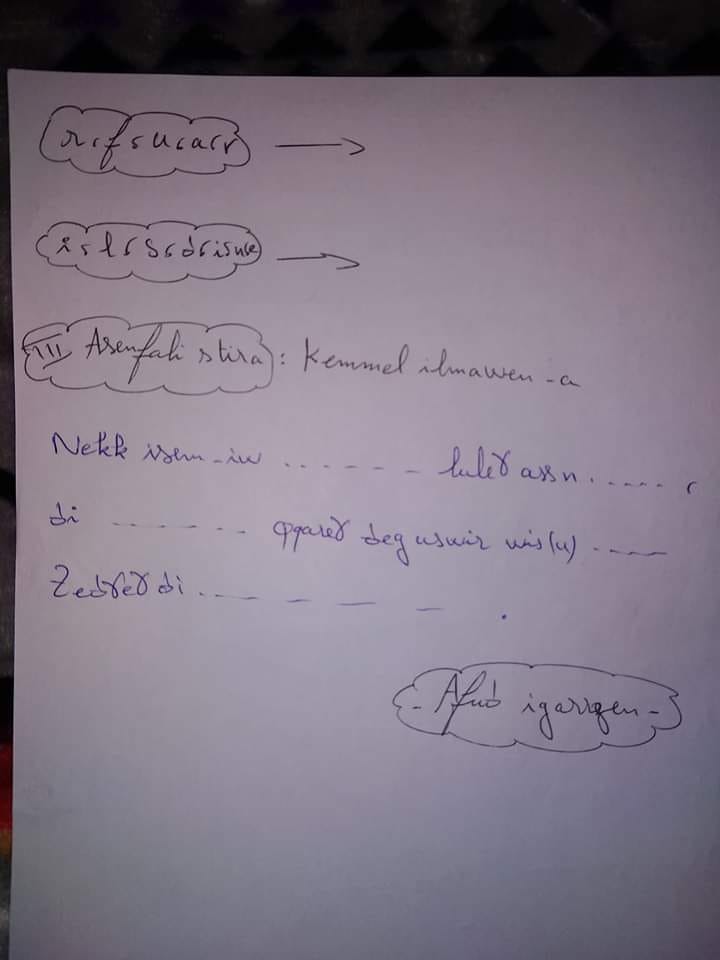 III Asenfali s tira : Kemmel ilmawen-a
Nekk isem-iw ...... luleɣ assn ......,
di ....... qqareɣ deg uswir wis(u) .....
Zedɣeɣ di ...... .
- Afud igarrzen -